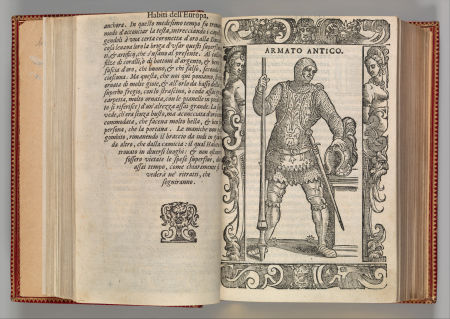 Habiti dell'Europa,
anchora. In questo medesimo tempo fu trouato
modo d'acconciar la testa, intrecciando i capelli,
gendoli à una certa cornetta d'oro alla
così
ti, & artifitio, che s'usano al presente. Al collo
filze di coralli, ò di bottoni d'argento, & hora
fascia d'oro, che buono, & chi falso, secondo
ciascuna. Ma questa, che noi qui poniamo,
ornata di molte gioie, & all'orlo da basso della
superbo fregio, con lo strascino, ò coda assai
carpetta, molto ornata, con le pianelle in piedi
to si riferisce) d'un'altezza assai grande. La
vede, ch'era senza busto, ma acconciata d'una
commodata, che faceua molto bella, & uista
persona, che la portaua. Le maniche non
gombito, rimanendo il braccio da indi in giù
da altro, che dalla camicia: il qual Habito
trouato in diuersi luoghi: & non essendo
fussero vietate le spese superflue, durò
assai tempo, come chiaramente si
vederà ne' ritratti, che
seguiranno.
ARMATO ANTICO.